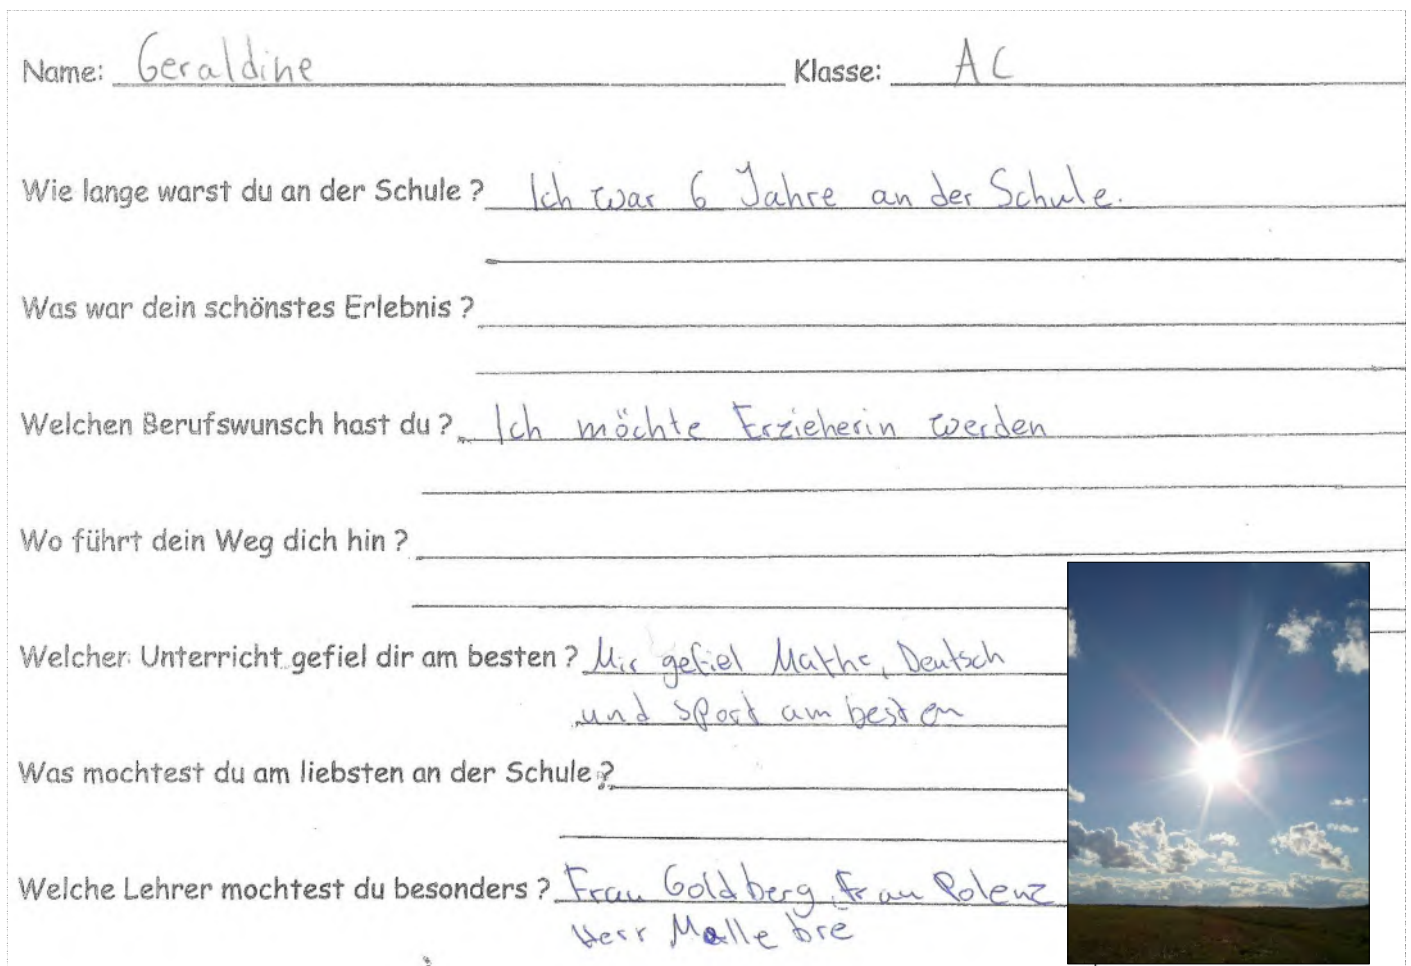 Name: Geraldine Klasse: AC
Wie lange warst du an der Schule ? Ich war 6 Jahre an der Schule.
Was war dein schönstes Erlebnis ?
Welchen Berufswunsch hast du ? Ich möchte Erzieherin werden
Wo führt dein Weg dich hin ?
Welcher Unterricht gefiel dir am besten ? Mir gefiel Mathe, Deutsch
und Sport am besten
Was mochtest du am liebsten an der Schule ?
Welche Lehrer mochtest du besonders ? Frau Goldberg, Frau Polenz
Herr Mallebre